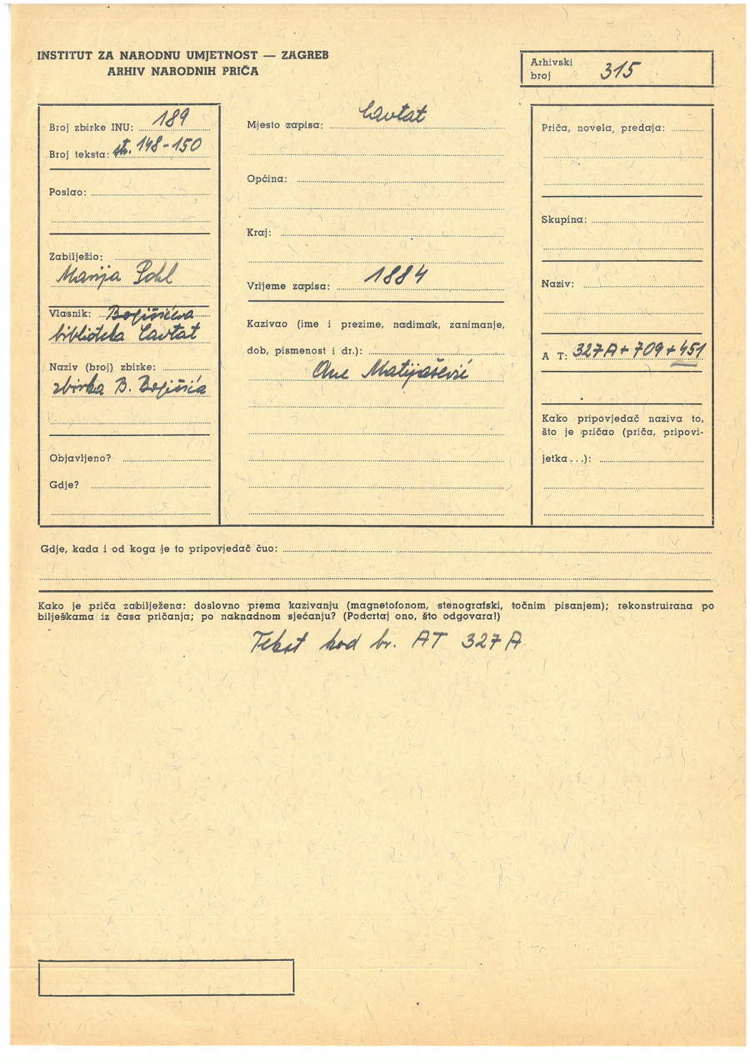 INSTITUT ZA NARODNU UMJETNOST — ZAGREB
ARHIV NARODNIH PRIČA
Arhivski
broj 315
Broj zbirke INU: 189
Broj teksta: str. 148-150
Poslao:
Zabilježio:
Manja
Vlasnik: Bogišićeva
biblioteka Cavtat
Naziv (broj) zbirke:
zbirka B. Bogišića
Objavljeno?
Gdje?
Mjesto zapisa: Cavtat
Općina:
Kraj:
Vrijeme zapisa: 1884
Kazivao (ime i prezime, nadimak, zanimanje,
dob, pismenost i dr.):
Ane Matijašević
Priča, novela, predaja:
Skupina:
Naziv:
A T: 327A + 709 + 451
Kako pripovjedač naziva to,
što je pričao (priča, pripovi-
jetka...):
Gdje, kada i od koga je to pripovjedač čuo:
Kako je priča zabilježena: doslovno prema kazivanju (magnetofonom, stenografski, točnim pisanjem); rekonstruirana po
bilješkama iz časa pričanja; po naknadnom sjećanju? (Podcrtaj ono, što odgovara!)
Tekst kod br. AT 327A